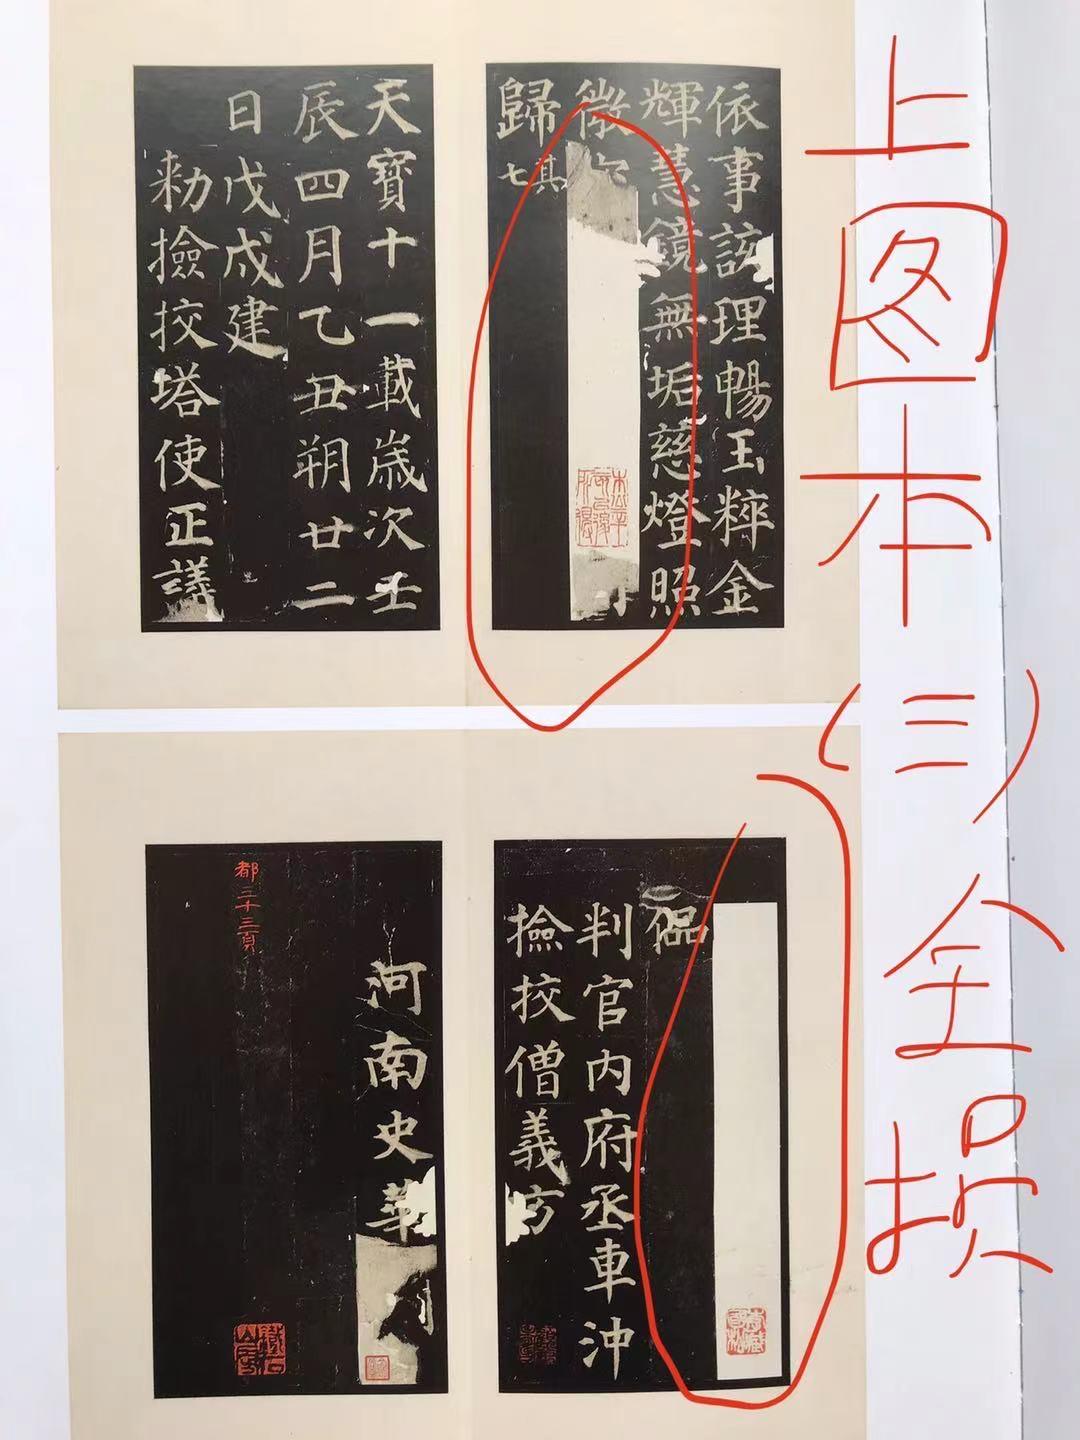 依事該理暢玉粹金
輝慧鏡無垢慈燈照
微
歸其七
天寶十一載歲次壬
辰四月乙丑朔廿二
日戊戌建
勑撿挍塔使正議
偘
判官內府丞車沖
撿挍僧義方
河南史華
都二十三頁
上图本(三)全损